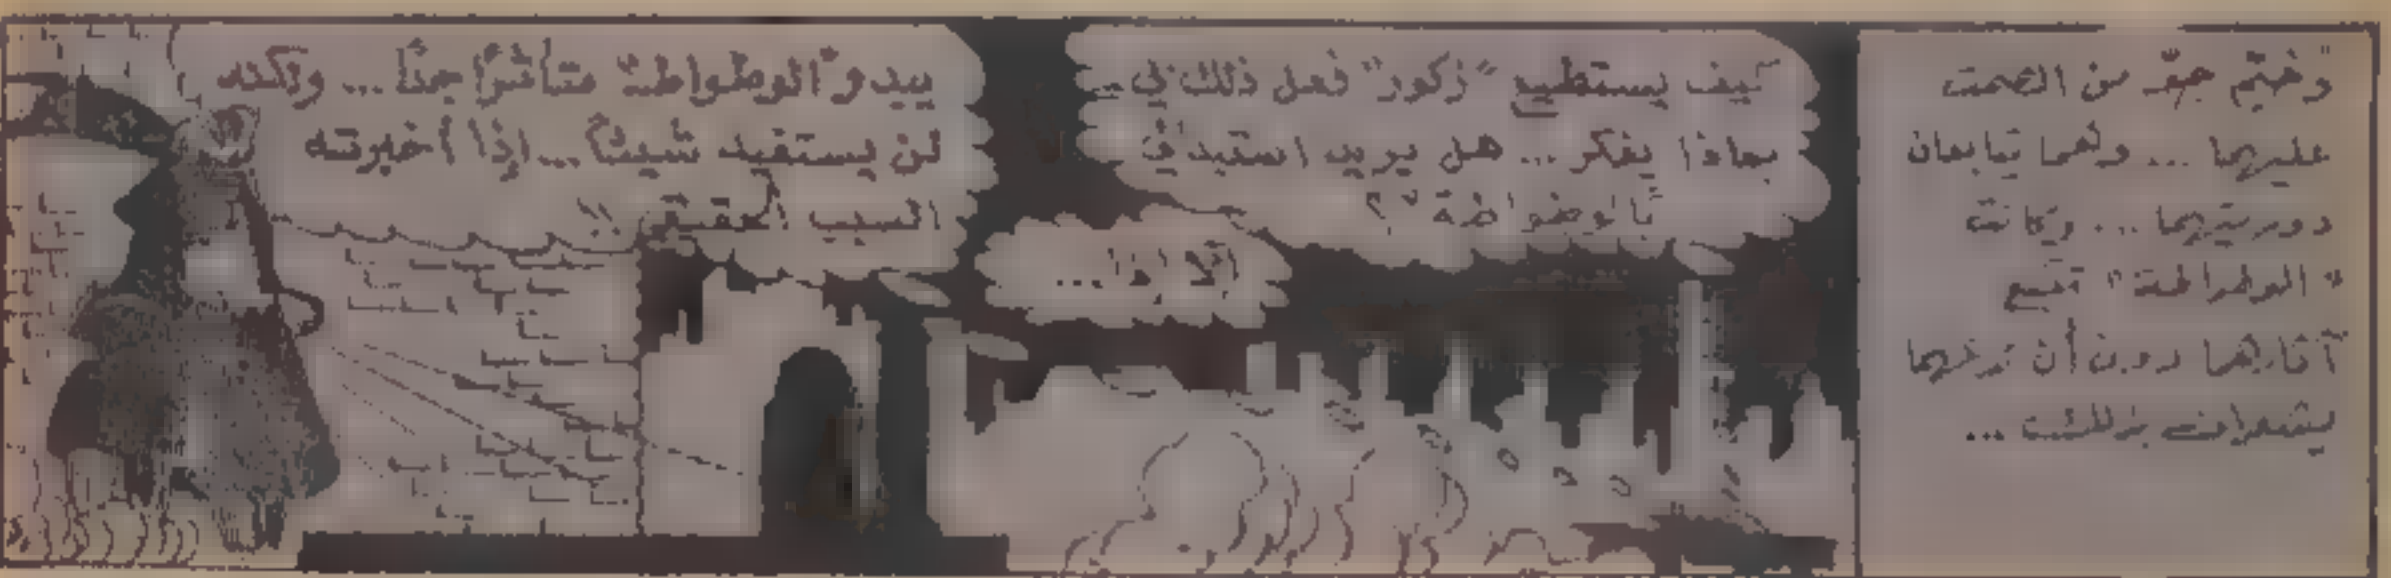 وخيّم جوّ من الصمت
عليهما ... وهما يتابعان
دوريتهما ... وكانت
"الوطواطة" تتبع
آثارهما دون أن تدعهما
يشعران بذلك ...
كيف يستطيع "زكور" فعل ذلك بي ...
بماذا يفكر ... هل يريد استبدالي
بالوطواطة"؟
لا لا ...
يبدو "الوطواط" متأثرًا جدًّا ... ولكنه
لن يستفيد شيئًا ... إذا أخبرته
السبب الحقيقي !!